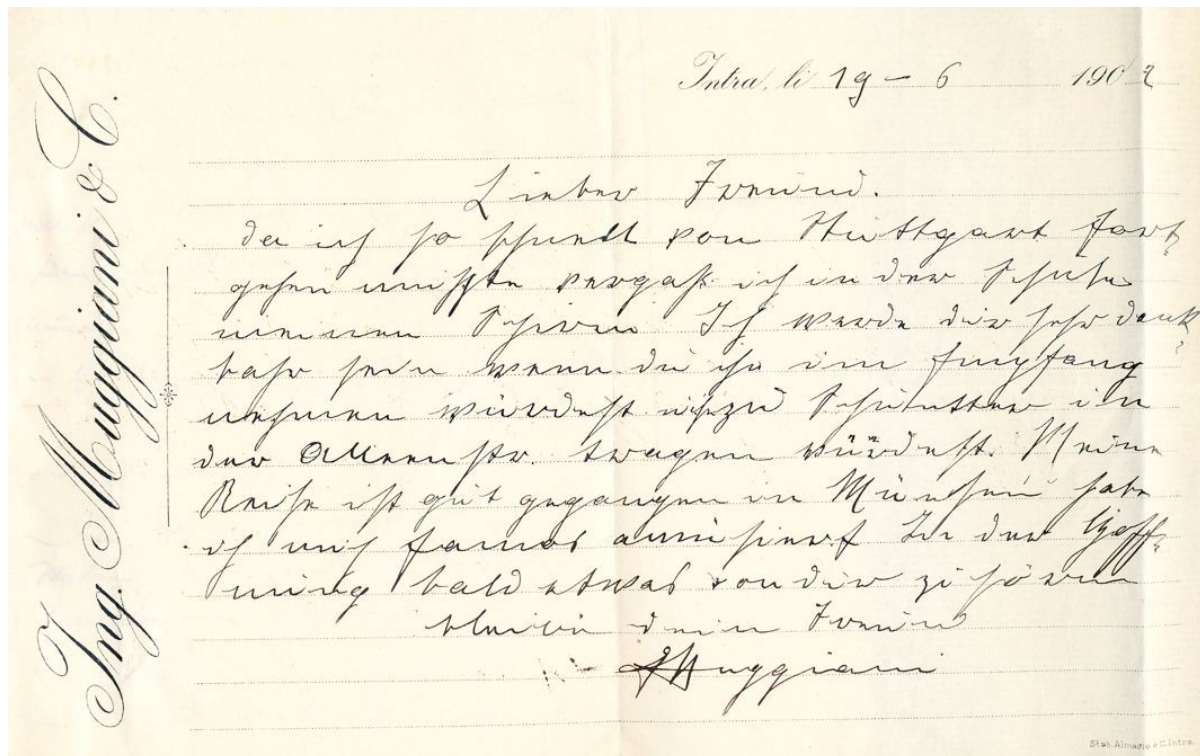 Ing. Muggiani & C.
Intra, li 19 - 6 1902
Lieber Freund.
da ich so schnell von Stuttgart fort-
gehen musste vergaß ich in der Schule
meinen Schirm Ich werde dir sehr dank-
bahr sein wenn du ihn im Empfang
nehmen würdest zu in
der Alleenstr. tragen würdest. Meine
Reise ist gut gegangen in München habe
ich mich famos amüsiert In der Hoff-
nung bald etwas von dir zu hören
bleibe dein Freund
Muggiani
Stab. Almasio e C. Intra